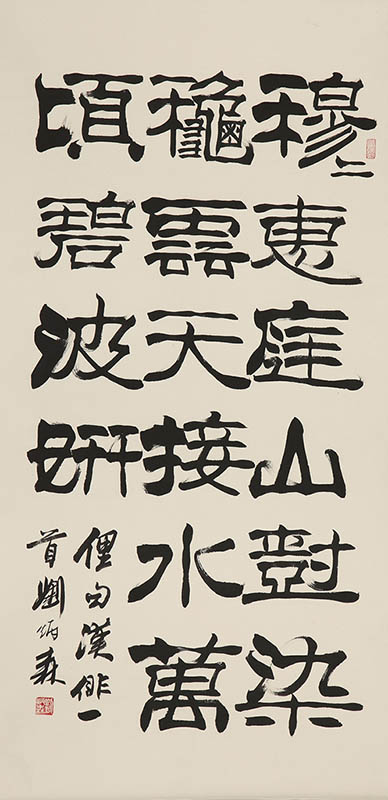 穆二東庭山樹染
龝雲天接水萬
頃碧波妍
俚句漢俳一
首劉炳森